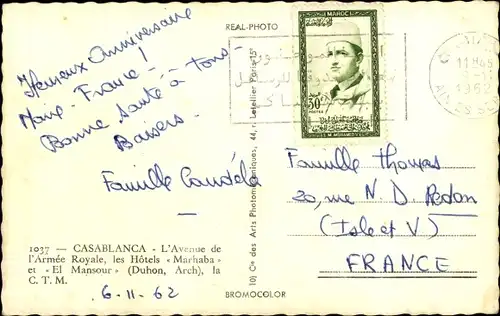 REAL-PHOTO
Heureux Anniversaire
Marie-France !
Bonne Santé à tous
Baisers
Famille
1037 — CASABLANCA - L'Avenue de
l'Armée Royale, les Hôtels « Marhaba »
et « El Mansour » (Duhon, Arch), la
C. T. M.
6-11-62
BROMOCOLOR
10) Cie des Arts Photomécaniques, 44, r. Letellier Paris-15e
MAROC
30F
POSTES
S.M. MOHAMED V
1962
Famille Thomas
20, rue N. D. Redon
(Isle et V)
FRANCE